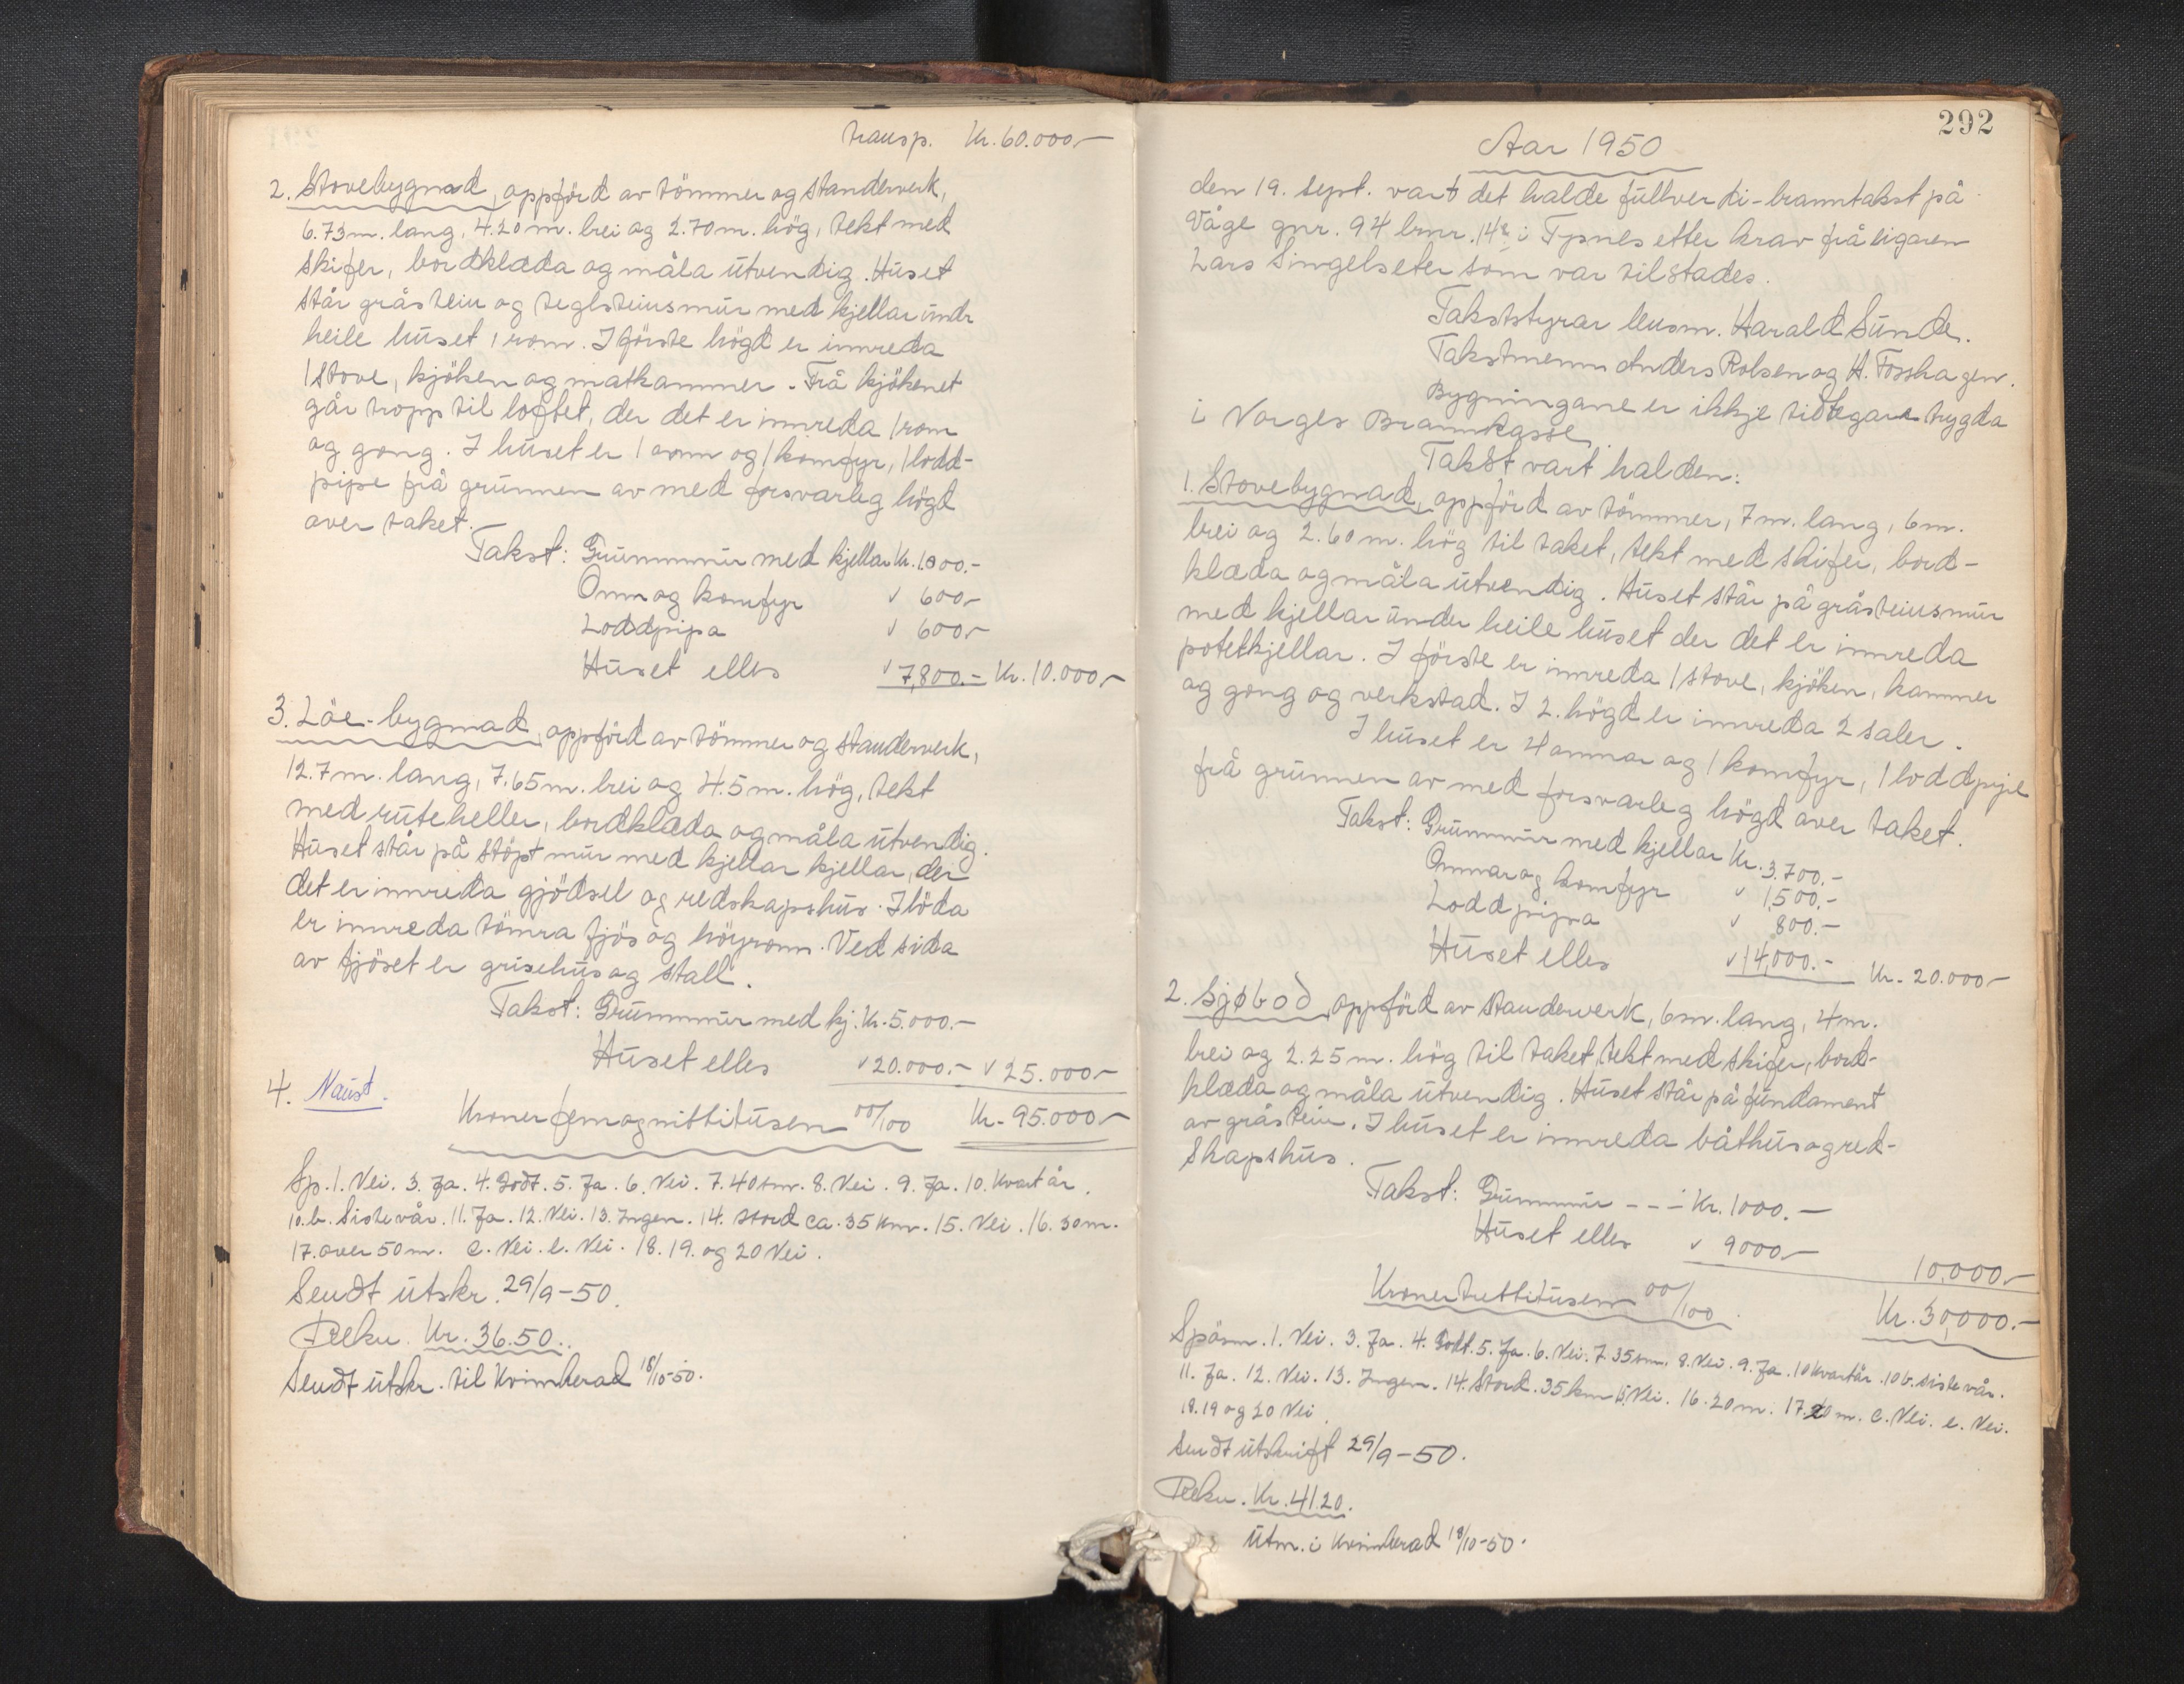 transp. Kr. 60.000,-
2. Stovebygnad, oppförd av tömmer og standerverk,
6.73 m. lang, 4.20 m. brei og 2.70 m. hög, tekt med
skifer, bordklæda og måla utvendig. Huset
står gråstein og teglsteinsmur med kjellar undr
heile huset 1 rom. I förste högd er innreda
1 stove, kjöken og matkammer. Frå kjökenet
går tropp til loftet, der det er innreda 1 rom
og gong. I huset er 1 omn og 1 komfyr, 1 lodd-
pipe frå grunnen av med forsvarleg högd
over taket.
Takst: Grunnmur med kjellar Kr. 1.000.-
Omn og komfyr " 600,-
Loddpipa " 600,-
Huset elles " 7,800.- Kr. 10.000,-
3. Löe-bygnad, oppförd av tömmer og standerverk,
12.7 m. lang, 7.65 m. brei og 4.5 m. hög, tekt
med ruteheller, bordklæda og måla utvendig.
Huset står på stöpt mur med kjellar kjellar, der
det er innreda gjödsel og redskapshus. I löda
er innreda tömra fjös og höyrom. Ved sida
av fjöset er grisehus og stall.
Takst: Grunnmur med kj. Kr. 5.000.-
Huset elles " 20.000.- " 25.000,-
4. Naust.
Kroner femognittitusen 00/100 Kr. 95.000,-
Sp. 1. Nei. 3. Ja. 4. Godt. 5. Ja. 6. Nei. 7. 40 sm. 8. Nei. 9. Ja. 10. Kvart år.
10.b. Siste vår. 11. Ja. 12. Nei. 13. Ingen. 14. Stord ca. 35 km. 15. Nei. 16. 30 m.
17. over 50 m. c. Nei. e. Nei. 18. 19. og 20 Nei.
Sendt utskr. 29/9-50.
Rekn. Kr. 36.50.
Sendt utskr. til Kvinnherad 18/10-50.
292
Aar 1950
den 19. sept. vart det halde fullverdi-branntakst på
Våge gnr. 94 bnr. 14 i Tysnes etter krav frå eigaren
Lars Singelseter som var tilstades.
Takststyrar lensm. Harald Sunde.
Takstmenn Anders Rolsen og H. Fosshagen.
Bygningane er ikkje tidlegare trygda
i Norges Brannkasse.
Takst vart halden:
1. Stovebygnad, oppförd av tömmer, 7 m. lang, 6 m.
brei og 2.60 m. hög til taket, tekt med skifer, bord-
klæda og måla utvendig. Huset står på gråsteinsmur
med kjellar under heile huset der det er innreda
potetkjellar. I förste er innreda 1 stove, kjöken, kammer
og gong og verkstad. I 2. högd er innreda 2 saler.
I huset er 4 omnar og 1 komfyr, 1 loddpipe
frå grunnen av med forsvarleg högd over taket.
Takst: Grunnmur med kjellar Kr. 3.700.-
Omnar og komfyr " 1,500.-
Loddpipa " 800.-
Huset elles " 14,000.- Kr. 20.000,-
2. Sjøbod, oppförd av standerverk, 6 m. lang, 4 m.
brei og 2.25 m. hög til taket, tekt med skifer, bord-
klæda og måla utvendig. Huset står på fundament
av gråstein. I huset er innreda båthus og red-
skapshus.
Takst: Grunnmur --- Kr. 1000.-
Huset elles " 9000,- 10,000,-
Kroner trettitusen 00/100. Kr. 30,000.-
Spörsm. 1. Nei. 3. Ja. 4. Godt. 5. Ja. 6. Nei. 7. 35 sm. 8. Nei. 9. Ja. 10 Kvartår. 10 b. siste vår.
11. Ja. 12. Nei. 13. Ingen. 14. Stord. 35 km 15. Nei. 16. 20 m. 17. 20 m. c. Nei. e. Nei.
18. 19 og 20 Nei.
Sendt utskrift 29/9-50.
Rekn. Kr. 41.20.
Utm. i Kvinnherad 18/10-50.